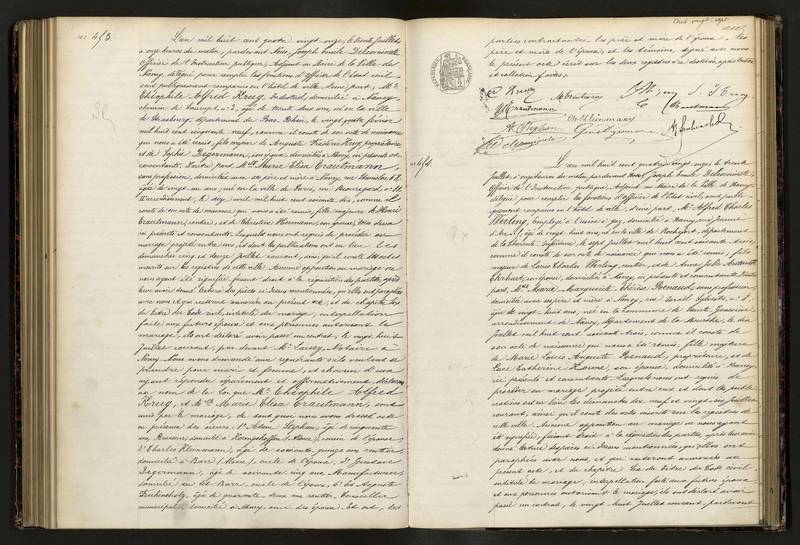 N° 453.
L'an mil huit cent quatre vingt onze, le trente Juillet
à onze heures du matin, pardevant Nous, Joseph Emile Delcominete
Officier de l'Instruction publique, Adjoint au Maire de la Ville de
Nancy, délégué pour remplir les fonctions d'Officier de l'Etat civil
sont publiquement comparus en l'hôtel de ville, d'une part, Mr
Théophile Alfred Krug, Industriel, domicilié à Nancy
chemin de, n° 3, âgé de trente deux ans, né en la ville
de Strasbourg, département du Bas-Rhin, le vingt quatre février
mil huit cent cinquante neuf, comme il conste de son acte de naissance
qui nous a été remis, fils majeur de Auguste Frédéric Krug, propriétaire
et de Sophie Degermann, son épouse, domiciliés à Nancy, ici présents et
consentants. D'autre part Melle Marie Elisa Trautmann
sans profession, domiciliée avec ses père et mère à Nancy, rue
âgée de vingt un ans, née en la ville de Paris, rue Beauregard, n°
Arrondissement, le dix avril mil huit cent soixante dix, comme il
conste de son acte de naissance, qui nous a été remis, fille majeure de Henri
Trautmann, rentier, et de son épouse, tous deux
ici présents et consentants. Lesquels nous ont requis de procéder au
mariage projeté entre eux, et dont les publications ont eu lieu les
dimanches cinq et douze juillet courant, ainsi qu'il conste des actes
inscrits sur les registres de cette ville. Aucune opposition au mariage ne
nous ayant été signifiée, faisant droit à la réquisition des parties, après
leur avoir donné lecture des pièces ci-dessus mentionnées, qu'elles ont paraphées
avec nous et qui resteront annexées au présent acte, et du chapitre Six
du titre du Code civil, intitulé du mariage, interpellation
faite aux futurs époux et aux personnes autorisant le
mariage, ils ont déclaré avoir passé un contrat, le vingt huit
Juillet courant, par devant Me Laissy, Notaire à
Nancy. Nous avons demandé aux requérants s'ils veulent se
prendre pour mari et femme, et chacun d'eux
ayant répondu séparément et affirmativement, déclarons
au nom de la loi que Mr Théophile Alfred
Krug et Melle Marie Elisa Trautmann, sont
unis par le mariage, de tout quoi nous avons dressé acte
en présence des sieurs 1° Adam Stephan, âgé de cinquante
ans, Brasseur, domicilié à Koenigshoffen, cousin de l'épouse,
2° Charles Kleinmann, âgé de soixante quinze ans, rentier
domicilié à Barr, oncle de l'époux, 3° Gustave
Degermann, âgé de soixante cinq ans, Manufacturier,
domicilié au dit Barr, oncle de l'époux, 4° et Auguste
âgé de quarante deux ans, rentier, Conseiller
municipal, domicilié à Nancy, ami des époux. Et ont, les
Cent vingt-sept
parties contractantes, les père et mère de l'époux, les
père et mère de l'épouse, et les témoins, signé avec nous
le présent acte écrit sur les deux registres à ce destinés, après lecture
et collation faites.
A Krug
M Trautmann
Trautmann
Ch Kleinmann
A Stephan
Gust Degermann
N° 454.
L'an mil huit cent quatre vingt onze, le trente
Juillet, à onze heures du matin, pardevant Nous, Joseph Emile Delcominete
Officier de l'Instruction publique, Adjoint au Maire de la Ville de Nancy,
délégué pour remplir les fonctions d'Officier de l'Etat civil, sont publi-
quement comparus en l'hôtel de ville, d'une part, Mr Alfred Charles
Werling, employé à l'usine à gaz, domicilié à Nancy, rue Jeanne
d'Arc, âgé de vingt huit ans, né en la ville de Rochefort, département
de la Charente Inférieure, le sept Juillet mil huit cent soixante trois,
comme il conste de son acte de naissance qui nous a été remis, fils
majeur de Louis Charles Werling, rentier, et de Anne Julie Antoinette
son épouse, domiciliés à Nancy, ici présents et consentants. D'autre
part, Melle Marie Marguerite Thérèse Renaud, sans profession,
domiciliée avec ses père et mère à Nancy, rue n° 8,
âgée de vingt huit ans, née en la commune de Sainte Geneviève,
arrondissement de Nancy, département de la Meurthe, le dix
Juillet mil huit cent soixante trois, comme il conste de
son acte de naissance qui nous a été remis, fille majeure
de Marie Louis Auguste Renaud, propriétaire, et de
Luce Catherine son épouse, domiciliés à Nancy,
ici présents et consentants. Lesquels nous ont requis de
procéder au mariage projeté entre eux, et dont les publi-
cations ont eu lieu les dimanches dix neuf et vingt six Juillet
courant, ainsi qu'il conste des actes inscrits sur les registres de
cette ville. Aucune opposition au mariage ne nous ayant
été signifiée, faisant droit à la réquisition des parties, après leur avoir
donné lecture des pièces ci-dessus mentionnées, qu'elles ont
paraphées avec nous, et qui resteront annexées au
présent acte, et du chapitre Six du titre du Code civil
intitulé du mariage, interpellation faite aux futurs époux
et aux personnes autorisant le mariage, ils ont déclaré avoir
passé un contrat, le vingt huit Juillet courant, pardevant